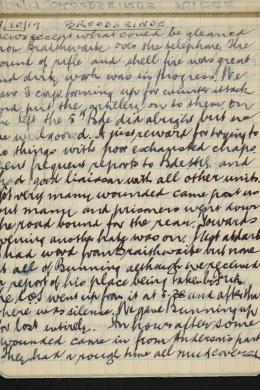 /10/17 BROODSEINDE RIDGE
news except what could be gleaned
from Braithwaite over the telephone. The
sound of rifle and shell fire was great
and dirty work was in progress. We
saw 3 coys forming up for counter attack
and put the artillery on to them on
the left the 5th Bde did alright but we
no good. A just reward for trying to
do things with poor exhausted chaps
sent frequent reports to Bde HQ and
had good liaison with all other units.
Not very many wounded came past us
but many and prisoners went down
the road bound for the rear. Towards
evening another hate was on. Night at dark
had word from Braithwaite but none
at all of Bunning although we received
a report of his place being taken
The SOS went up from it at 5 and after that
there was silence. We gave Bunning up
for lost entirely. An hour after some
wounded came in from Anderson's party
They had a rough time all mud covered